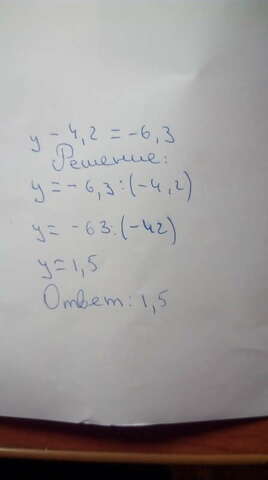 y - 4,2 = -6,3
Решение:
y = - 6,3 : (- 4,2)
y = -63 : (-42)
y = 1,5
Ответ: 1,5